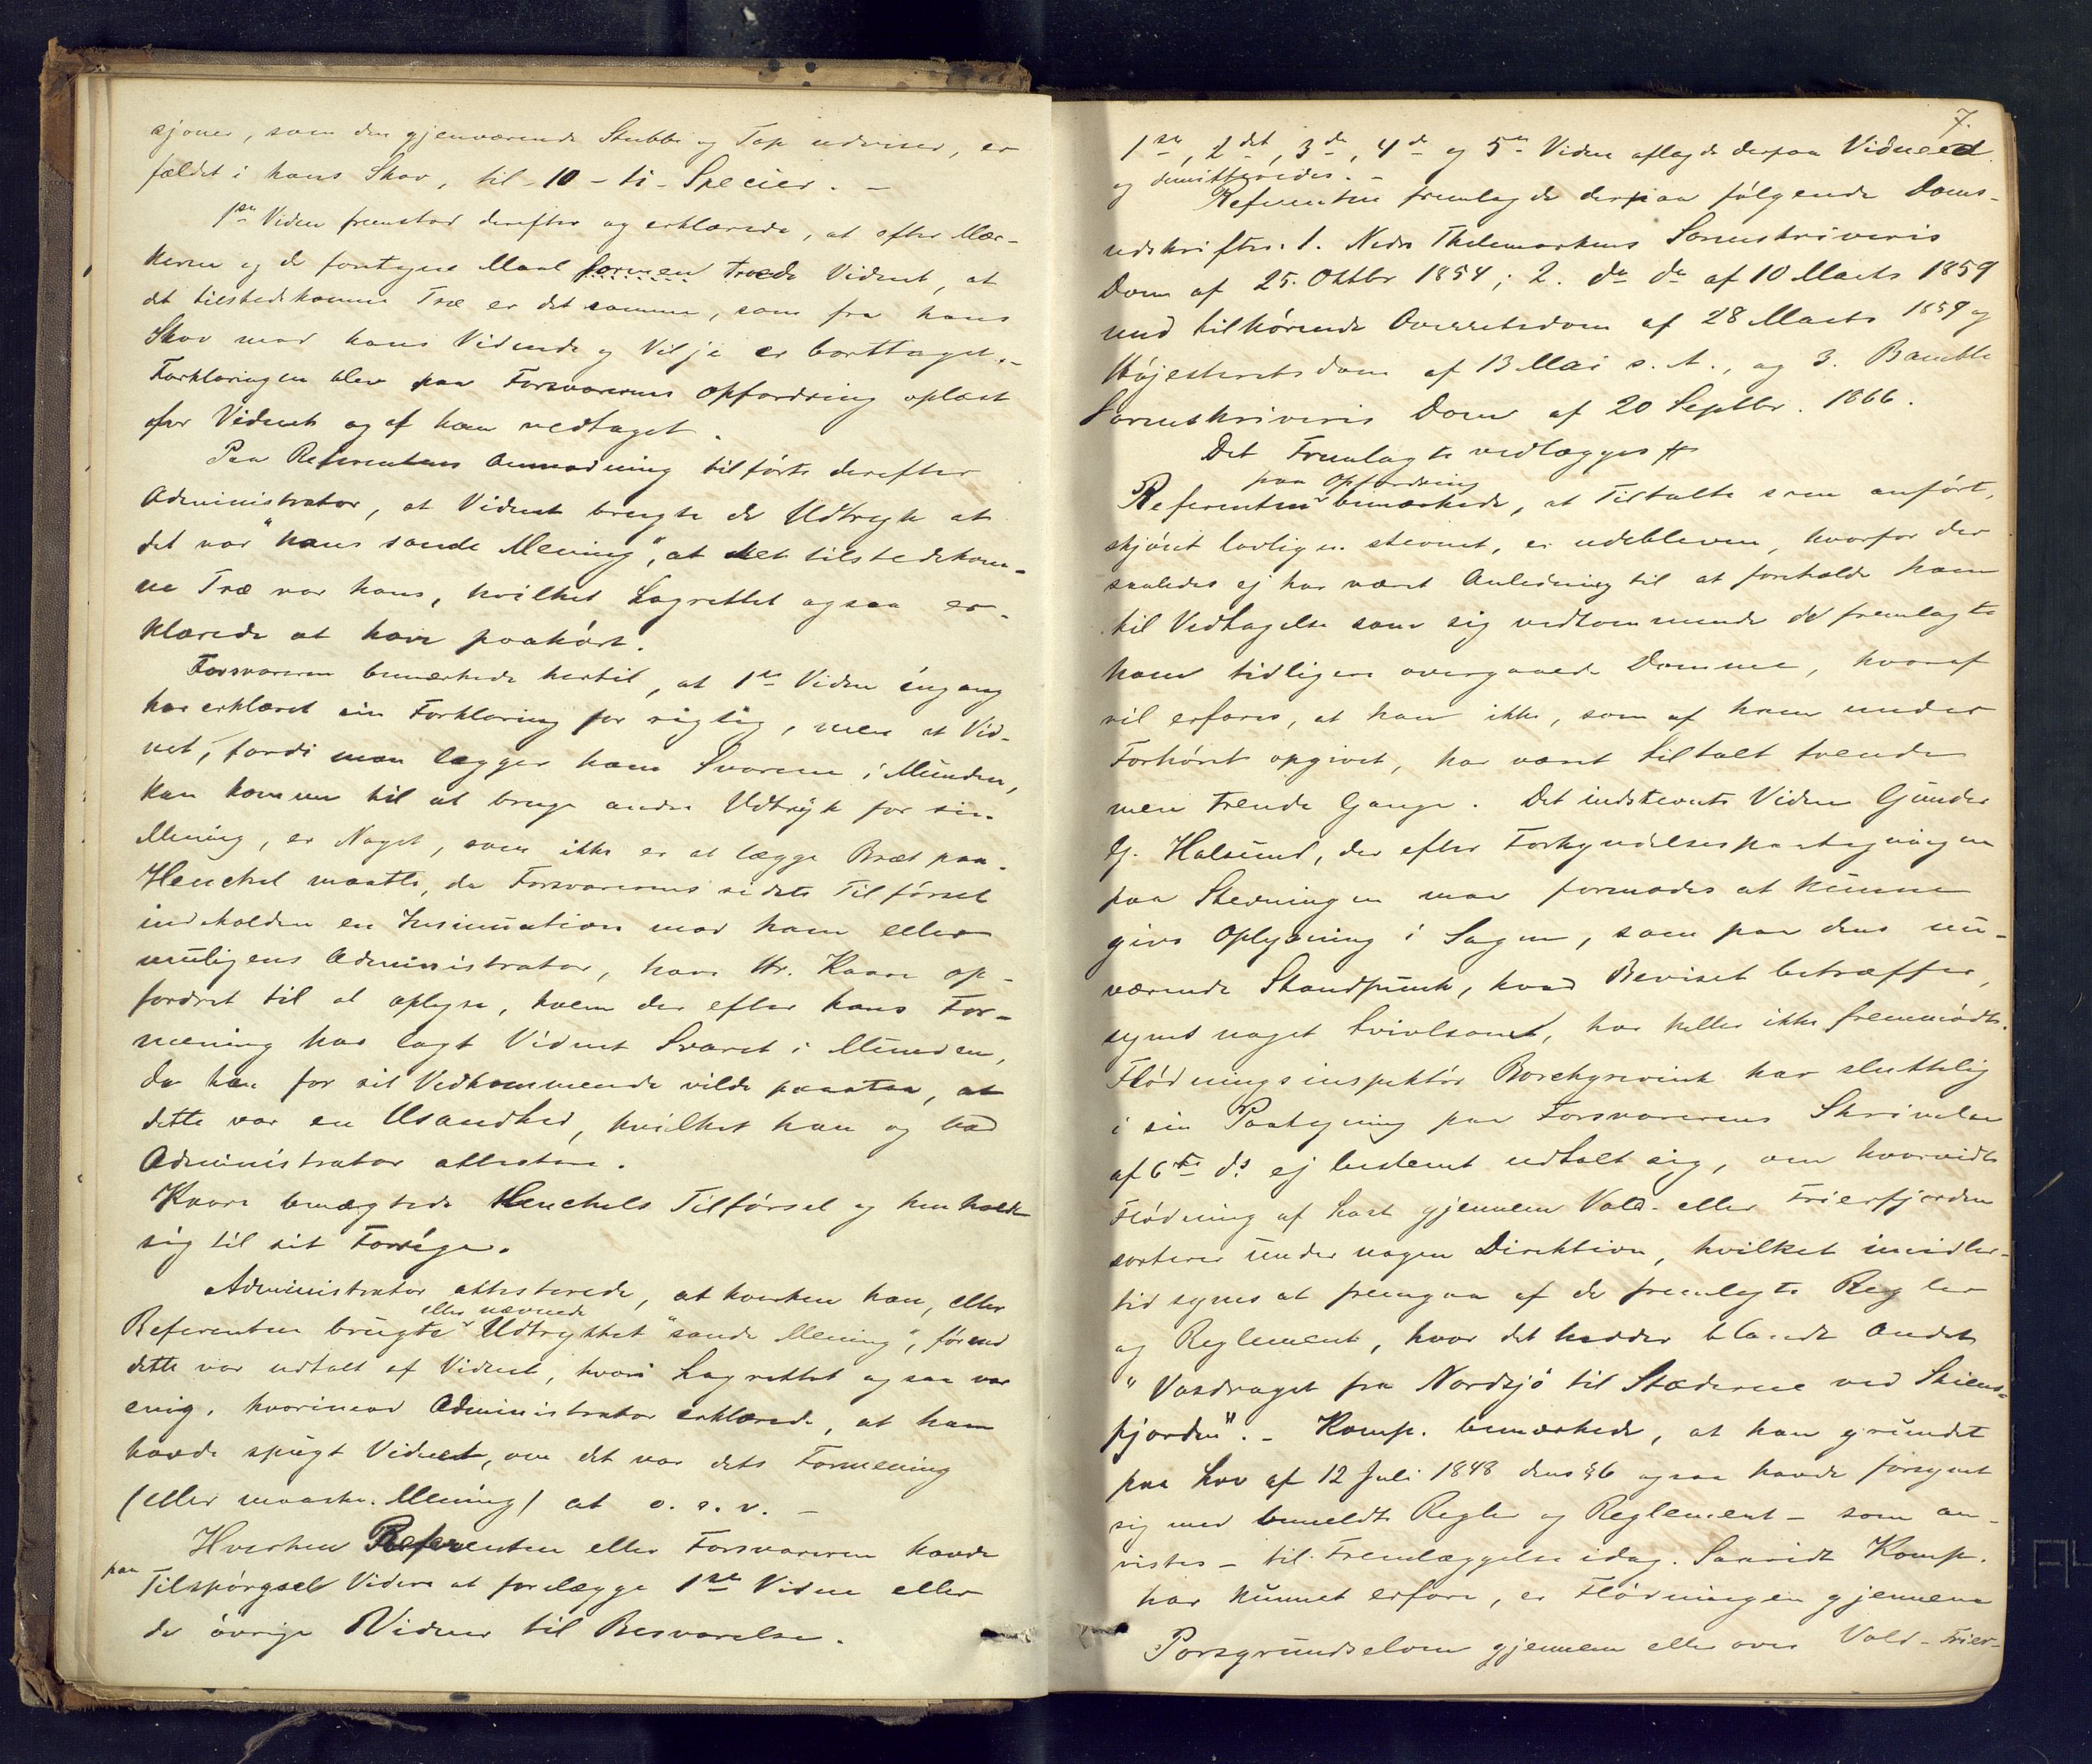 sjoner, som den gjenværende Stubbe og Top udviser, er
fældet i hans Skov, til 10 - ti - Specier. -
1ste Vidne fremstod derefter og erklærede, at efter Mær-
kerne og de foretagne Maal formen troede Vidnet, at
det tilstedekomne Træ er det samme, som fra hans
Skov mod hans Vidende og Vilje er borttaget. -
Forklaringen blev paa Forsvarerens Opfordring oplæst
for Vidnet og af ham vedtaget.
Paa Referentens Anmodning tilførte derefter
Administrator, at Vidnet brugte de Udtryk at
det var "hans sande Mening", at det tilstedekom-
ne Træ var hans, hvilket Lagrettet ogsaa er-
klærede at have paahørt.
Forsvareren bemærkede hertil, at 1ste Vidne éngang
har erklæret sin Forklaring for rigtig, men at Vid-
net, fordi man lægger ham Svarene i Munden,
kan komme til at bruge andre Udtryk for sin
Mening, er Noget, som ikke er at lægge Bræt paa.
Henchel maatte, da Forsvarerens sidste Tilførsel
indeholder en Insinuation mod ham eller
muligens Administrator, have Hr. Kaare op-
fordret til at oplyse, hvem der efter hans For-
mening har lagt Vidnet Svaret i Munden,
da han for sit Vedkommende vilde paastaa, at
dette var en Usandhed, hvilket han og bad
Administrator attestere.
Kaare benægtede Henchels Tilførsel og henholdt
sig til sit Forrige.
Administrator attesterede, at hverken han, eller
eller nævnede
Referenten brugte Udtrykket "sande Mening", førend
dette var udtalt af Vidnet, hvori Lagrettet ogsaa var
enig, hvorimod Administrator erklærede, at han
havde spurgt Vidnet, om det var dets Formening
(eller maaske Mening) at o. s. v. -
Hverken Referenten eller Forsvareren havde
paa
Tilspørgsel Videre at forelægge 1ste Vidne eller
de øvrige Vidner til Besvarelse.
7.
1ste, 2det, 3de, 4de og 5te Vidne aflagde derpaa Vidneed
og demitteredes. -
Referenten fremlagde derpaa følgende Doms-
udskrifter: 1. Nedre Thelemarkens Sorenskriveris
Dom af 25. Oktbr 1854; 2. do do af 10 Marts 1859
med tilhørende Overretsdom af 28 Marts 1859 og
Højesteretsdom af 13 Mai s. A., og 3. Bamble
Sorenskriveris Dom af 20 Septbr. 1866.
Det Fremlagte vedlægges #
paa Opfordring
Referenten bemærkede, at Tiltalte som anført,
skjønt lovligen stevnet, er udebleven, hvorfor der
saaledes ej har været Anledning til at foreholde ham
til Vedtagelse som sig vedkommende de fremlagte
ham tidligere overgaaede Domme, hvoraf
vil erfares, at han ikke, som af ham under
Forhøret opgivet, har været tiltalt tvende
men trende Gange. Det indstevnte Vidne Gunder
G. Halsund, der efter Forkyndelsespaategningen
paa Stevningen maa formodes at kunne
give Oplysning i Sagen, som paa dens nu-
værende Standpunk, hvad Beviset betræffer,
synes noget tvivlsomt, har heller ikke fremmødt.
Flødningsinspektør Borchgrevink har sluttelig
i sin Paategning paa Forsvarerens Skrivelse
af 6te ds ej bestemt udtalt sig, om hvorvidt
Flødning af Last gjennem Vold- eller Frierfjorden
sorterer under nogen Direktion, hvilket imidler-
tid synes at fremgaa af de fremlagte Regler
og Reglement, hvor det hedder blandt Andet
"Vasdraget fra Nordsjø til Stæderne ved Skiens-
fjorden". - Komp. bemærkede, at han grundet
paa Lov af 12 Juli 1848 dens §6 ogsaa havde forsynet
sig med bemeldte Regler og Reglement - som an-
vistes - til Fremlæggelse idag. Saavidt Komp.
har kunnet erfare, er Flødningen gjennem
Porsgrundselven gjennem eller over Vold- Frier-